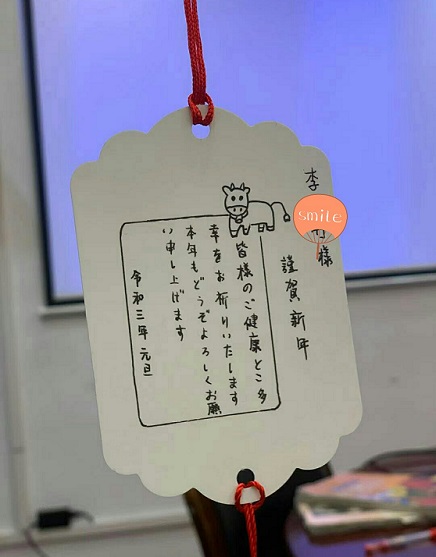 李 様
smile
謹賀新年
皆様のご健康とご多
幸をお祈りいたします
本年もどうぞよろしくお願
い申し上げます
令和三年 元旦